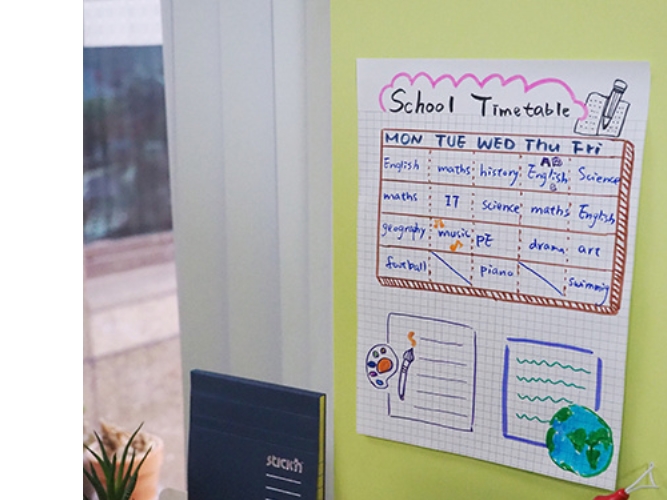 School Timetable
MON TUE WED Thu Fri
English maths history English Science
AB
maths IT science maths English
geography music PE drama art
football piano swimming
stick'n